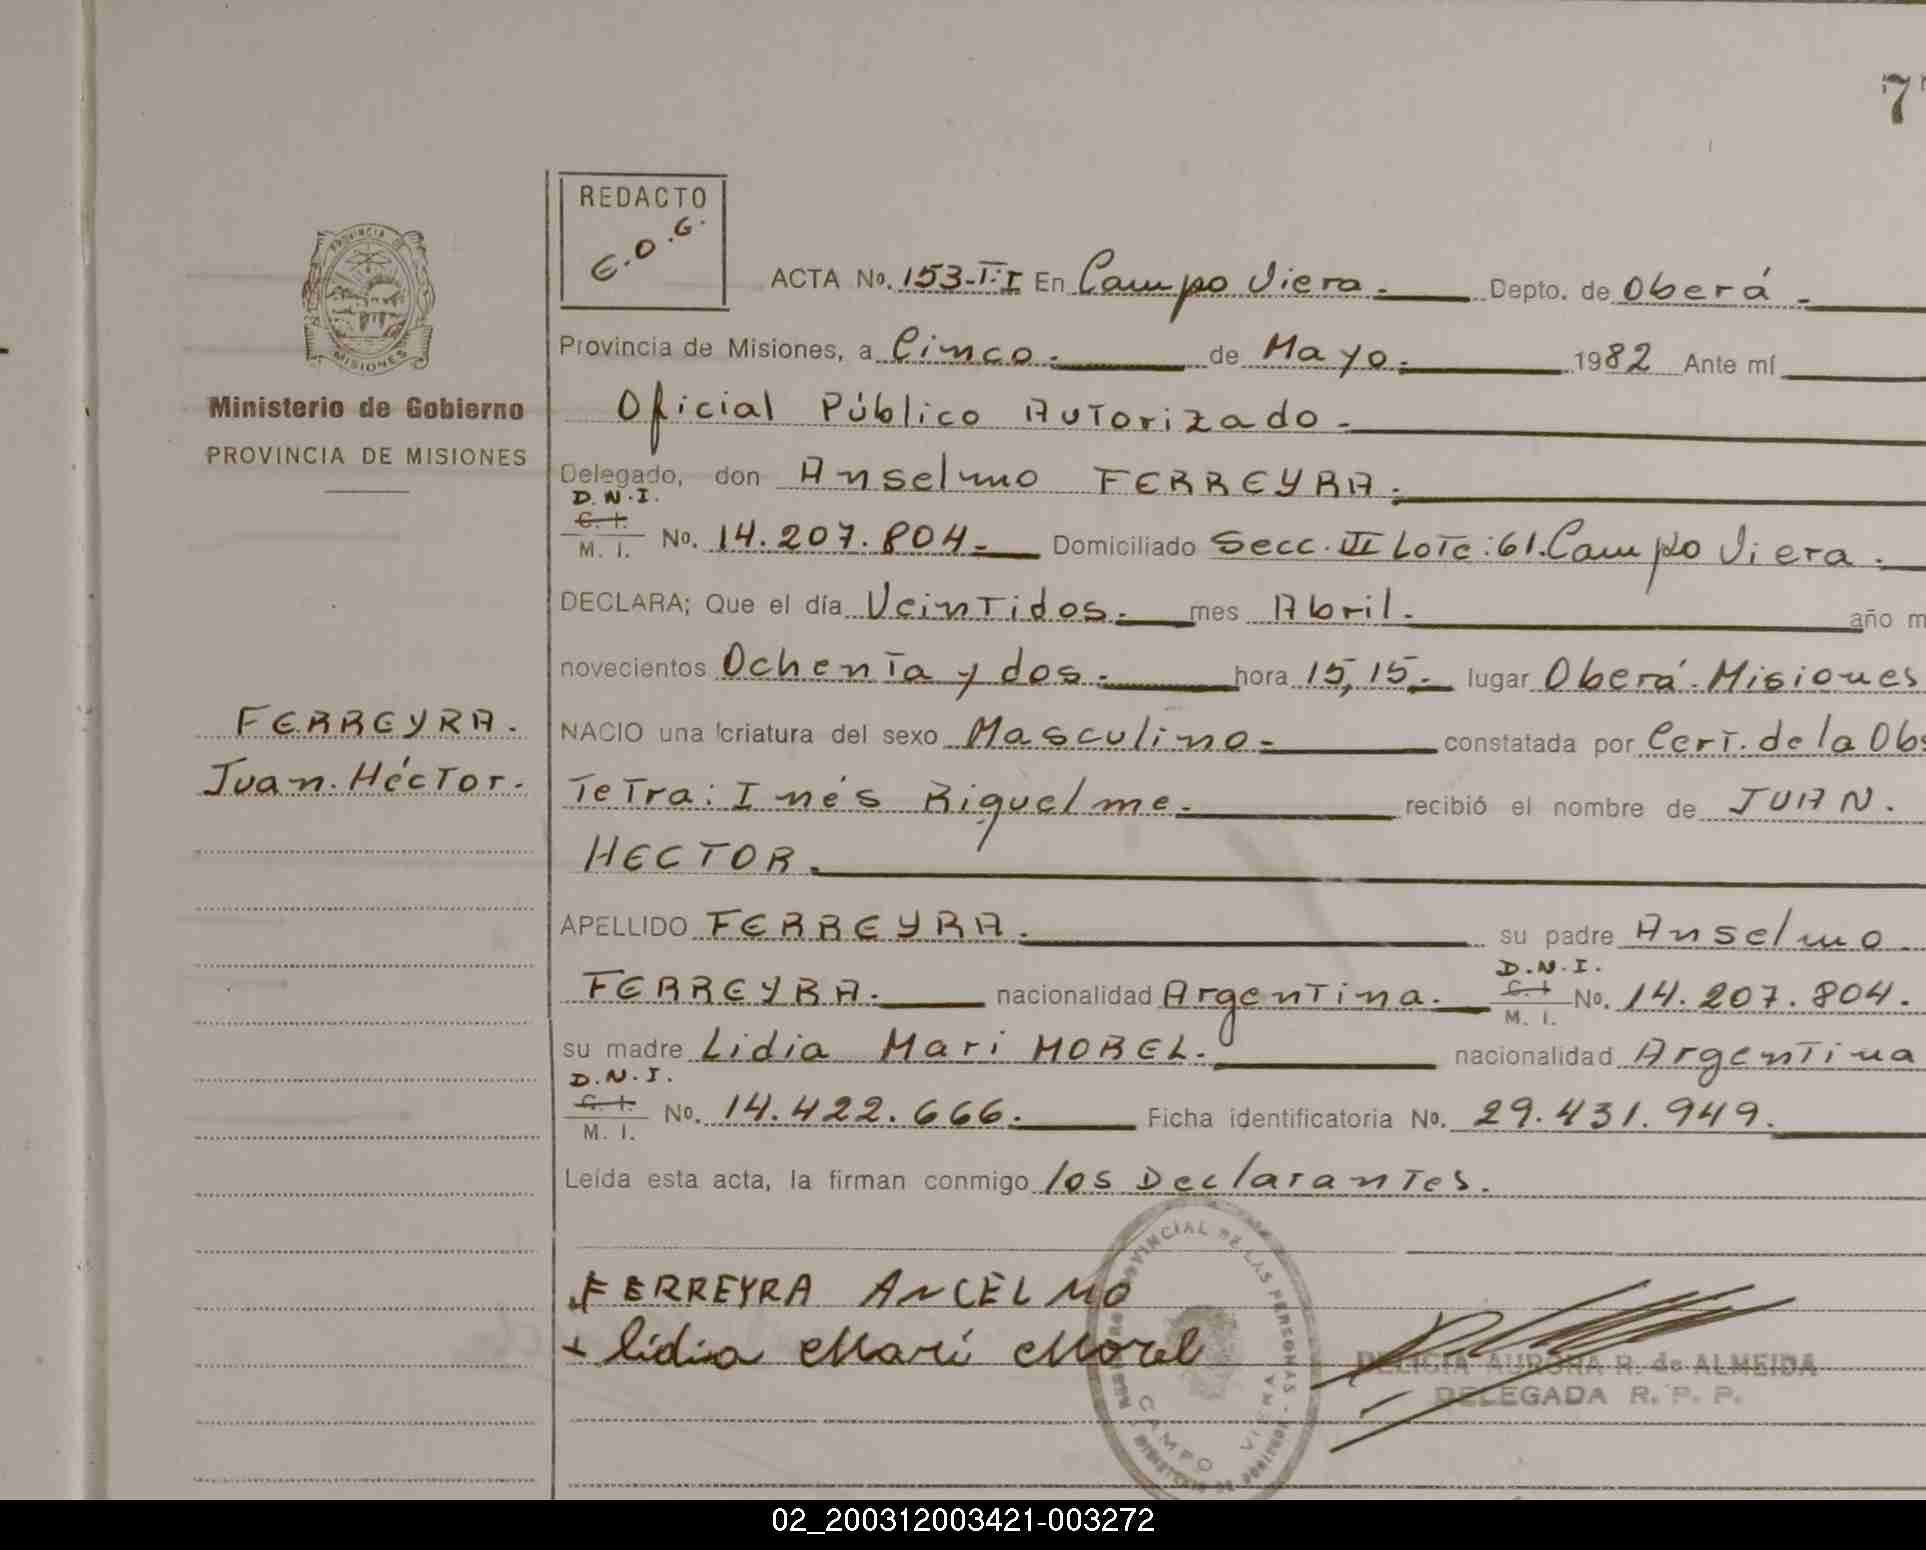 7
REDACTO
E.O.G.
PROVINCIA DE
MISIONES
ACTA No. 153-T:I En Campo Viera.- Depto. de Oberá.-
Provincia de Misiones, a Cinco.- de Mayo.- 1982 Ante mí
Ministerio de Gobierno
PROVINCIA DE MISIONES
Oficial Público Autorizado.-
Delegado, don Anselmo FERREYRA.-
D.N.I.
C. I.
M. I.
No. 14.207.804.- Domiciliado Secc. II Lote:61.Campo Viera.
DECLARA; Que el día Veintidos.- mes Abril.- año m
novecientos Ochenta y dos.- hora 15,15.- lugar Oberá.Misiones
FERREYRA.
Juan.Héctor.
NACIO una criatura del sexo Masculino.- constatada por Cert.de la Obs
Tetra:Inés Riquelme.- recibió el nombre de JUAN.
HECTOR.-
APELLIDO FERREYRA.- su padre Anselmo
FERREYRA.- nacionalidad Argentina.- D.N.I. C. I. M. I. No. 14.207.804.
su madre Lidia Mari MOREL.- nacionalidad Argentina
D.N.I.
C. I.
M. I.
No. 14.422.666.- Ficha identificatoria No. 29.431.949.
Leída esta acta, la firman conmigo los Declarantes.
FERREYRA ANCELMO
+ lidia Marí Morel
PROVINCIAL DE LAS PERSONAS
CAMPO VIERA
DELICIA AURORA R. de ALMEIDA
DELEGADA R. P. P.
02_200312003421-003272